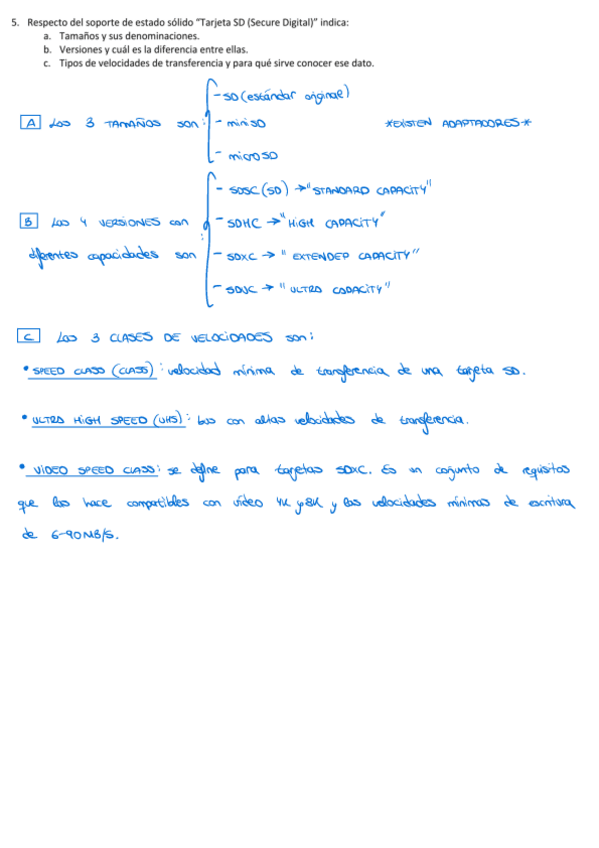 5. Respecto del soporte de estado sólido "Tarjeta SD (Secure Digital)" indica:
a. Tamaños y sus denominaciones.
b. Versiones y cuál es la diferencia entre ellas.
c. Tipos de velocidades de transferencia y para qué sirve conocer ese dato.
- SD (estándar original)
A Los 3 TAMAÑOS son: - miniSD *EXISTEN ADAPTADORES*
- microSD
- SDSC (SD) → "STANDARD CAPACITY"
B Las 4 VERSIONES con - SDHC → "HIGH CAPACITY"
diferentes capacidades son: - SDXC → "EXTENDED CAPACITY"
- SDUC → "ULTRA CAPACITY"
C Las 3 CLASES DE VELOCIDADES son:
• SPEED CLASS (CLASS): velocidad mínima de transferencia de una tarjeta SD.
• ULTRA HIGH SPEED (UHS): bus con altas velocidades de transferencia.
• VIDEO SPEED CLASS: se define para tarjetas SDXC. Es un conjunto de requisitos
que las hace compatibles con vídeo 4K y 8K y las velocidades mínimas de escritura
de 6-90MB/S.